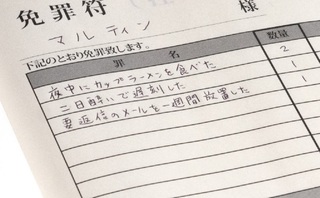 免罪符
様
マルティン
下記のとおり免罪致します。
罪 名 数量
夜中にカップラーメンを食べた 2
二日酔いで遅刻した 1
要返信のメールを一週間放置した 1